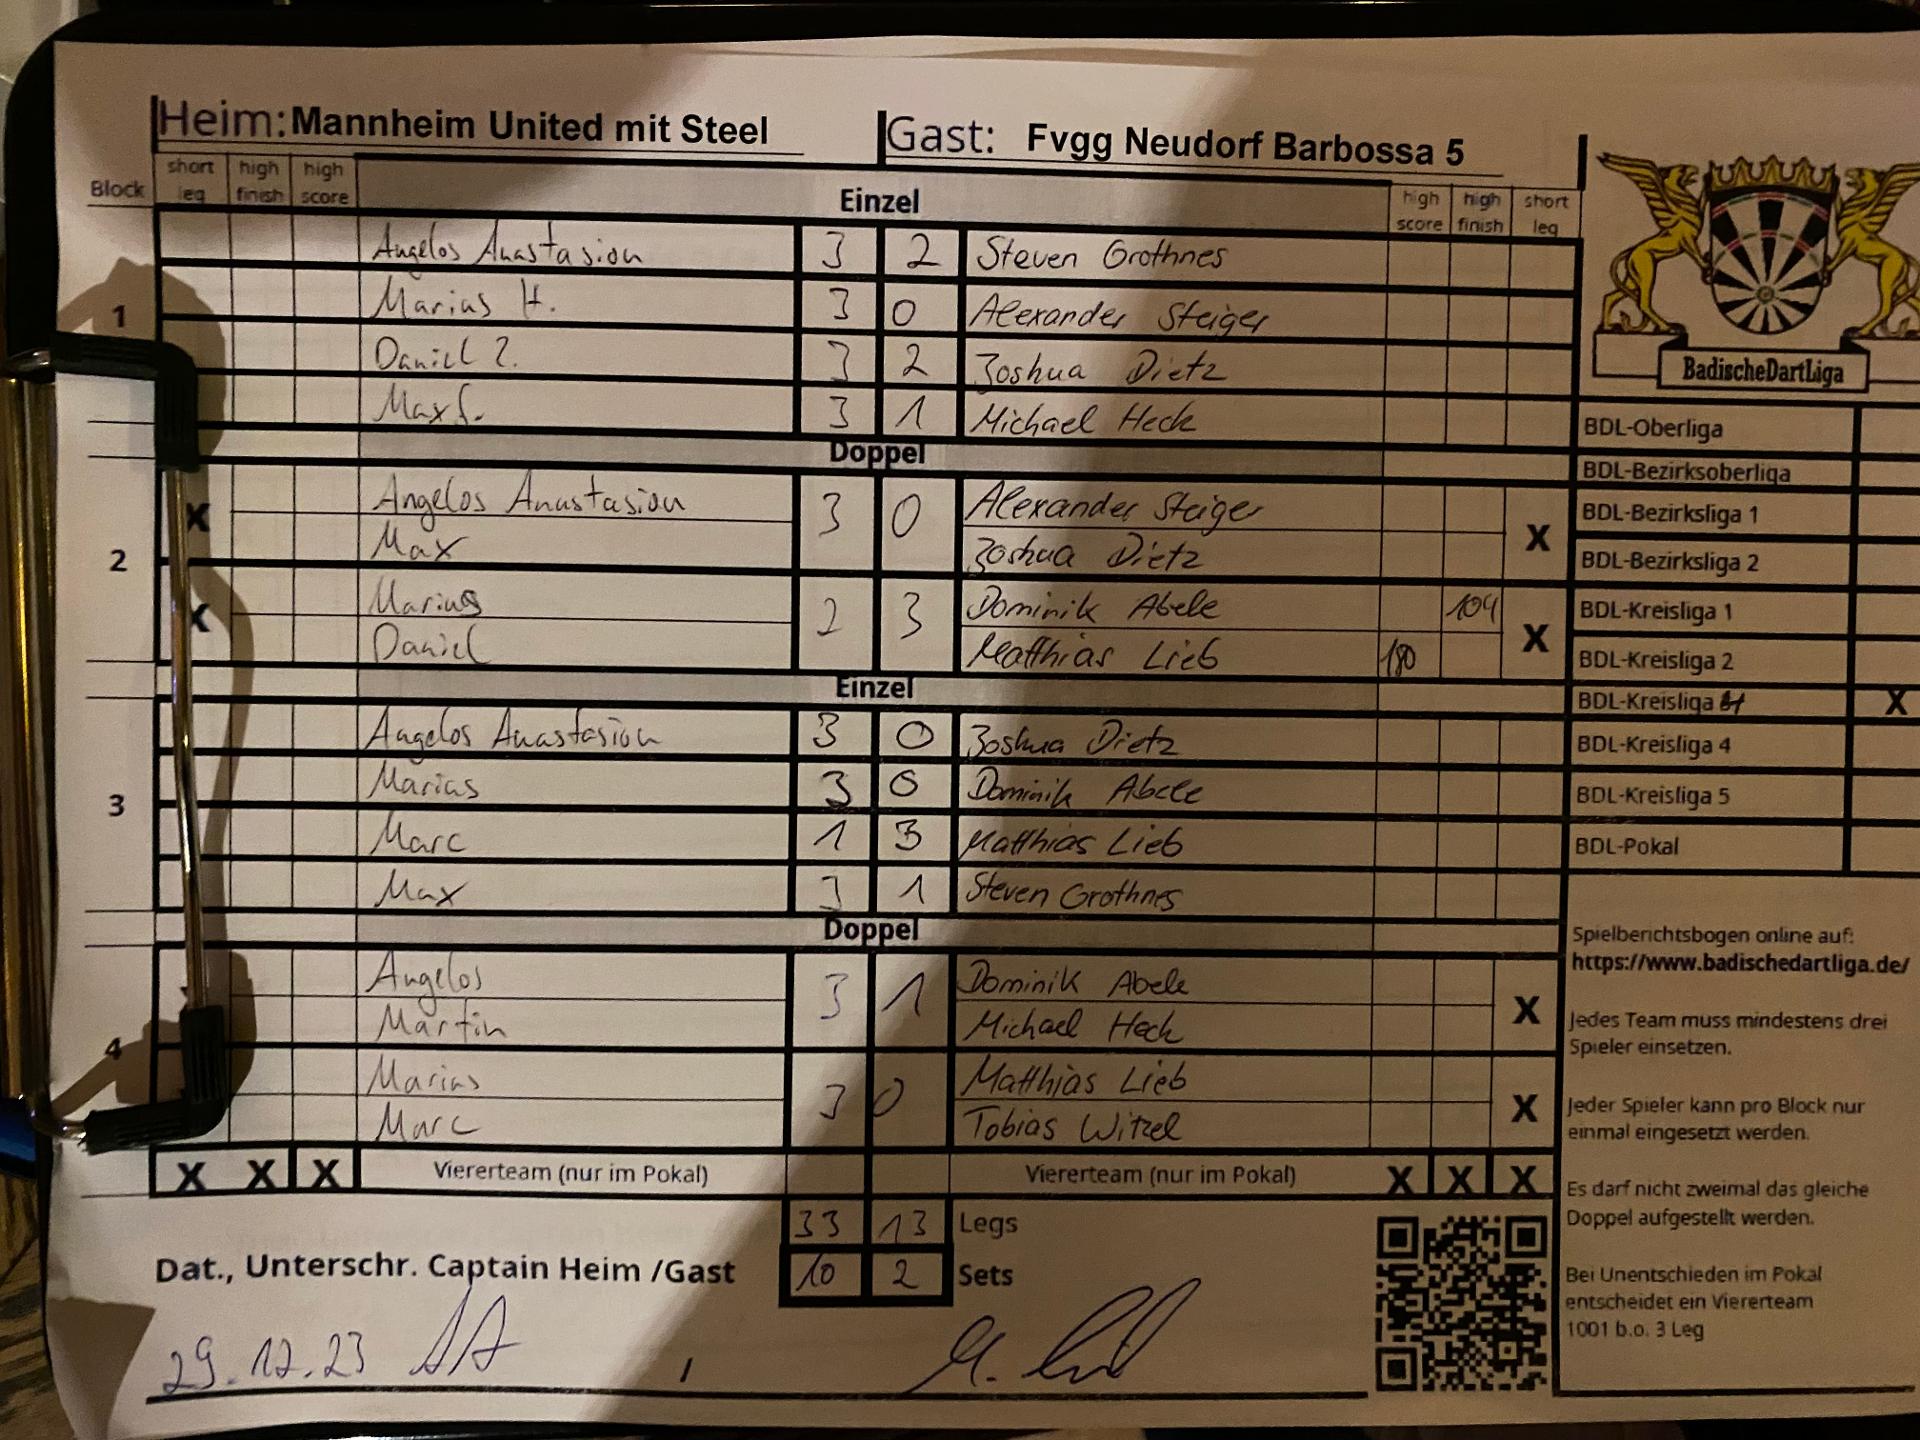 Heim: Mannheim United mit Steel Gast: Fvgg Neudorf Barbossa 5
Block short leg high finish high score Einzel high score high finish short leg
1
Angelos Anastasiou 3 2 Steven Grothnes
Marius H. 3 0 Alexander Steiger
Daniel Z. 3 2 Joshua Dietz
Max S. 3 1 Michael Heck
Doppel
2
X Angelos Anastasiou 3 0 Alexander Steiger X
Max Joshua Dietz
X Marius 2 3 Dominik Abele 104 X
Daniel Matthias Lieb 180
Einzel
3
Angelos Anastasiou 3 0 Joshua Dietz
Marius 3 0 Dominik Abele
Marc 1 3 Matthias Lieb
Max 3 1 Steven Grothnes
Doppel
4
Angelos 3 1 Dominik Abele X
Martin Michael Heck
Marius 3 0 Matthias Lieb X
Marc Tobias Witzel
X X X Viererteam (nur im Pokal) Viererteam (nur im Pokal) X X X
33 13 Legs
10 2 Sets
Dat., Unterschr. Captain Heim /Gast
29.12.23 /
BadischeDartLiga
BDL-Oberliga
BDL-Bezirksoberliga
BDL-Bezirksliga 1
BDL-Bezirksliga 2
BDL-Kreisliga 1
BDL-Kreisliga 2
BDL-Kreisliga X
BDL-Kreisliga 4
BDL-Kreisliga 5
BDL-Pokal
Spielberichtsbogen online auf:
https://www.badischedartliga.de/
Jedes Team muss mindestens drei
Spieler einsetzen.
Jeder Spieler kann pro Block nur
einmal eingesetzt werden.
Es darf nicht zweimal das gleiche
Doppel aufgestellt werden.
Bei Unentschieden im Pokal
entscheidet ein Viererteam
1001 b.o. 3 Leg